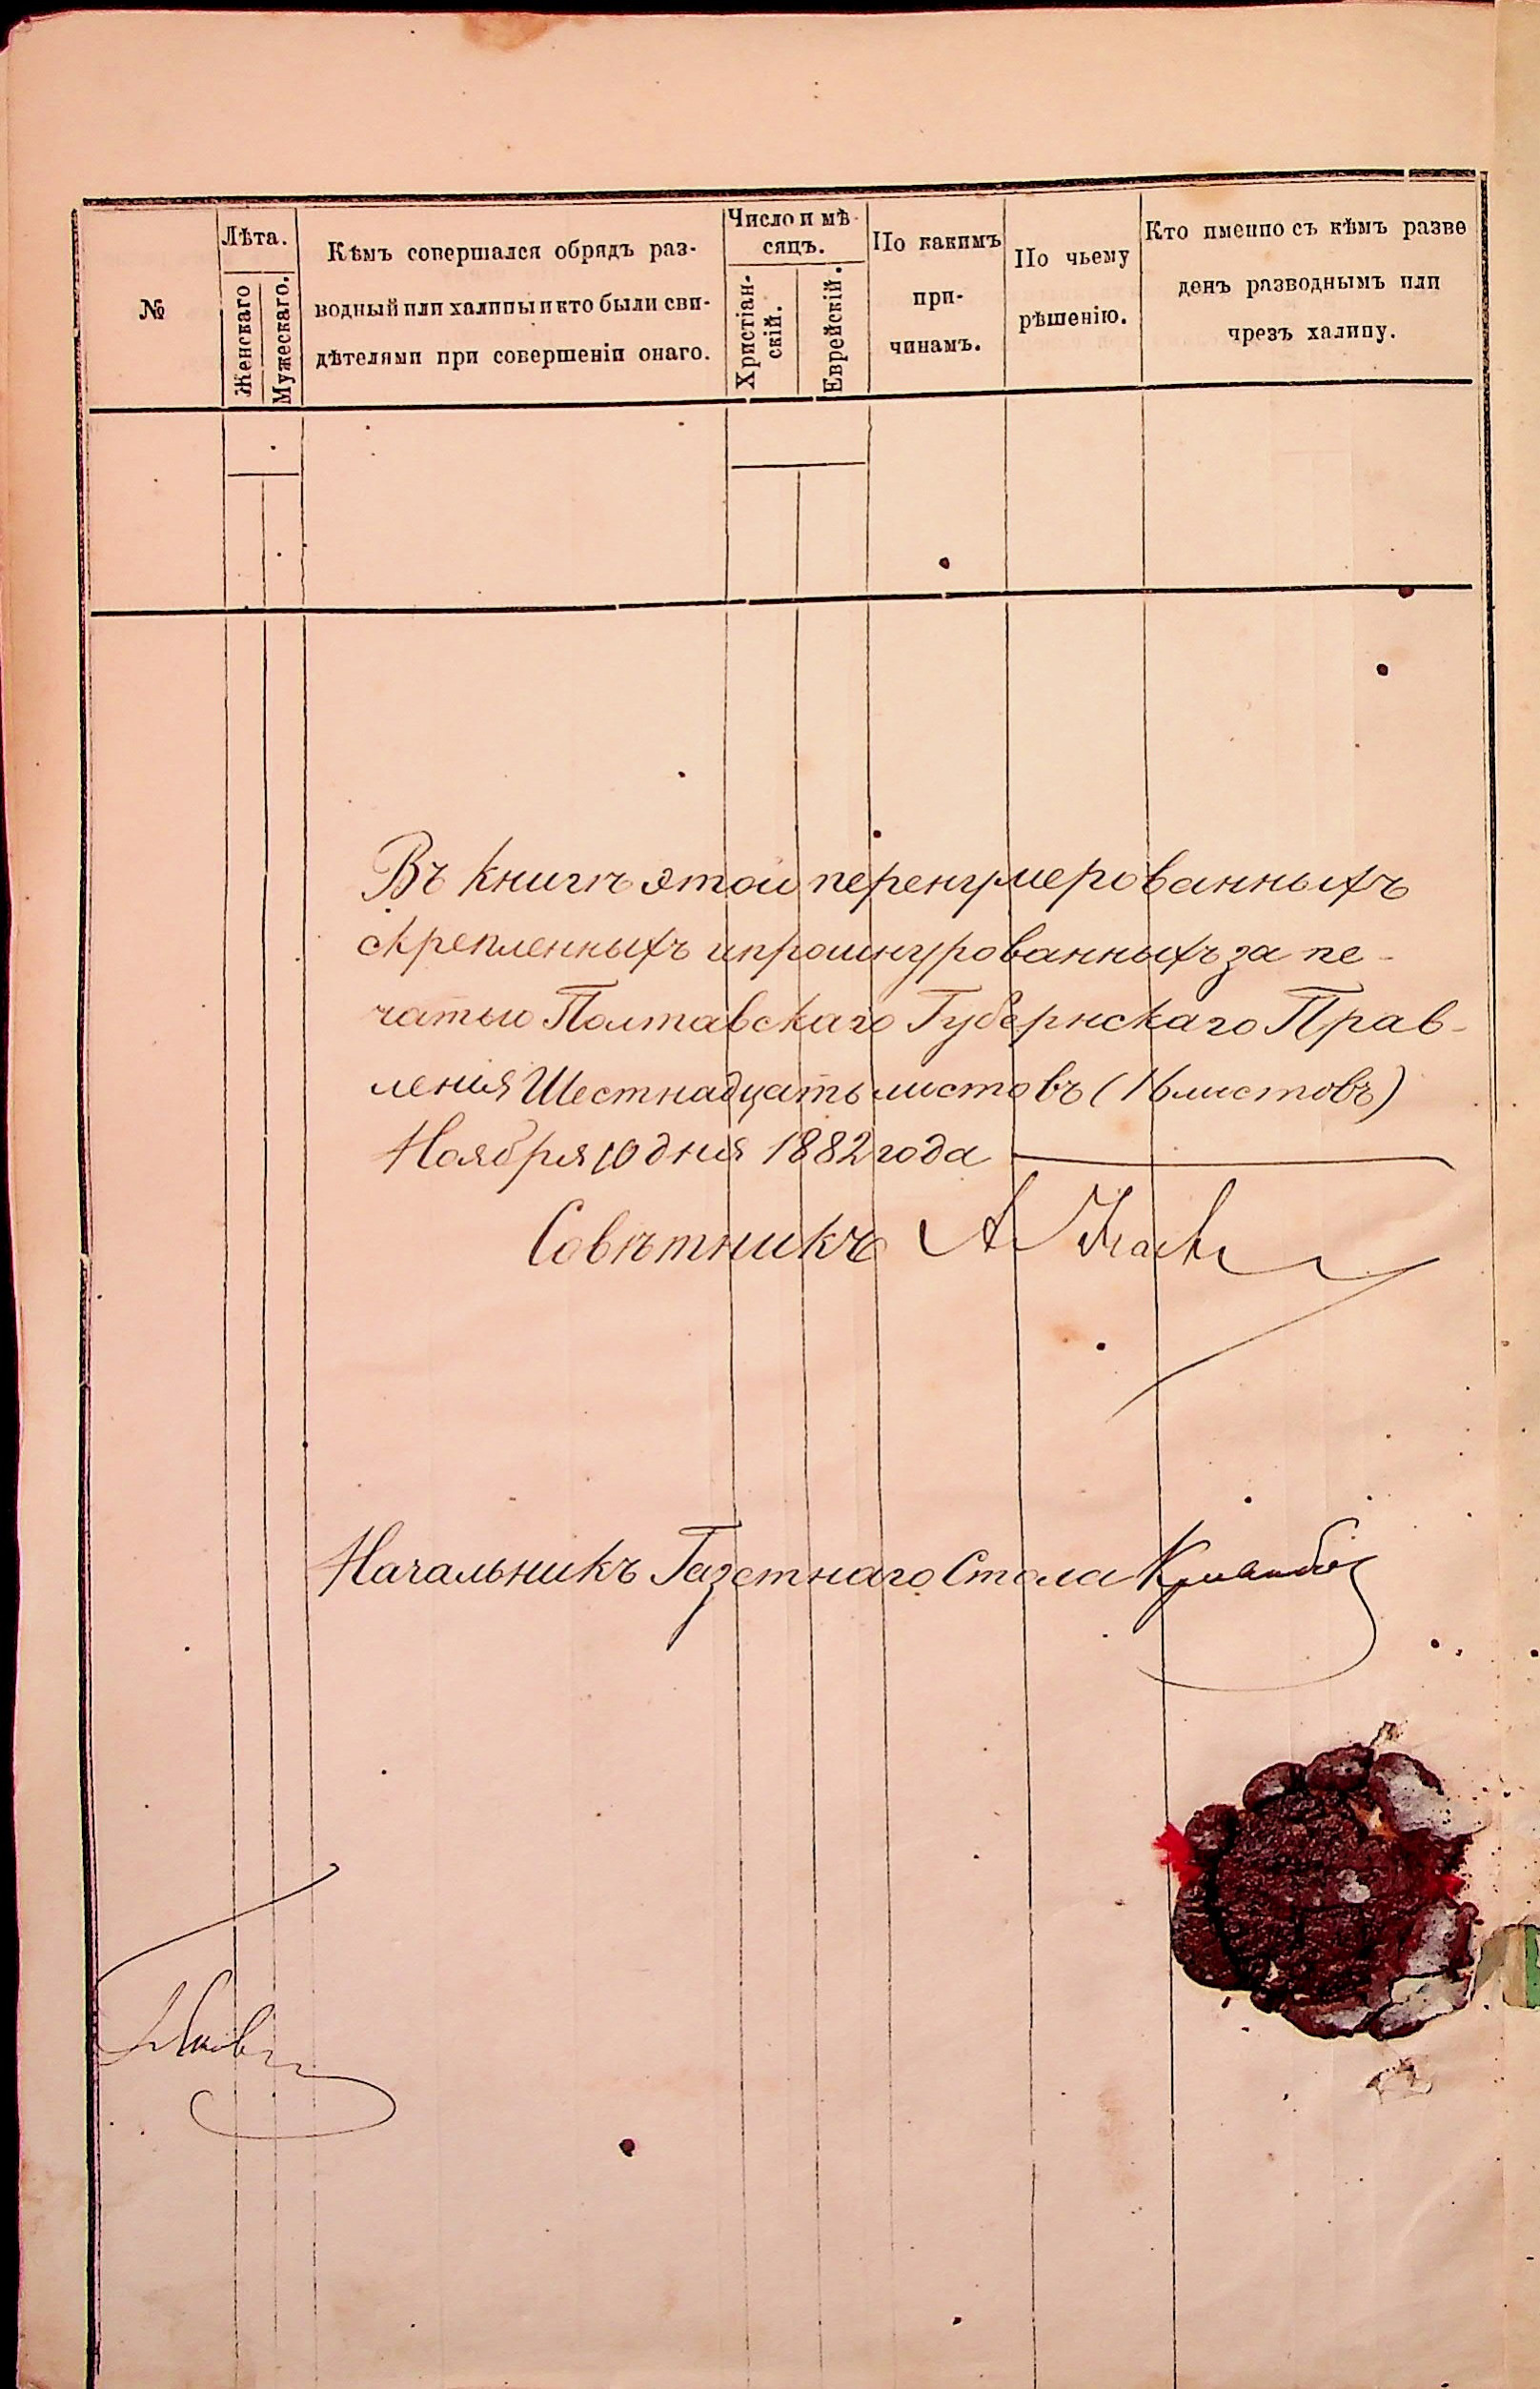 №
Лѣта.
Женскаго
Мужескаго.
Кѣмъ совершался обрядъ раз-
водный или халицы и кто были сви-
дѣтелями при совершеніи онаго.
Число и мѣ-
сяцъ.
Христіан-
скій.
Еврейскій.
По какимъ
при-
чинамъ.
По чьему
рѣшенію.
Кто именно съ кѣмъ разве
денъ разводнымъ или
чрезъ халицу.
Въ книгѣ этой перенумерованныхъ
скрепленныхъ и прошнурованныхъ за пе-
чатью Полтавскаго Губернскаго Прав-
ленія Шестнадцать листовъ (16 листовъ)
Ноября 10 дня 1882 года
Совѣтникъ А
Начальникъ Газетнаго Стола